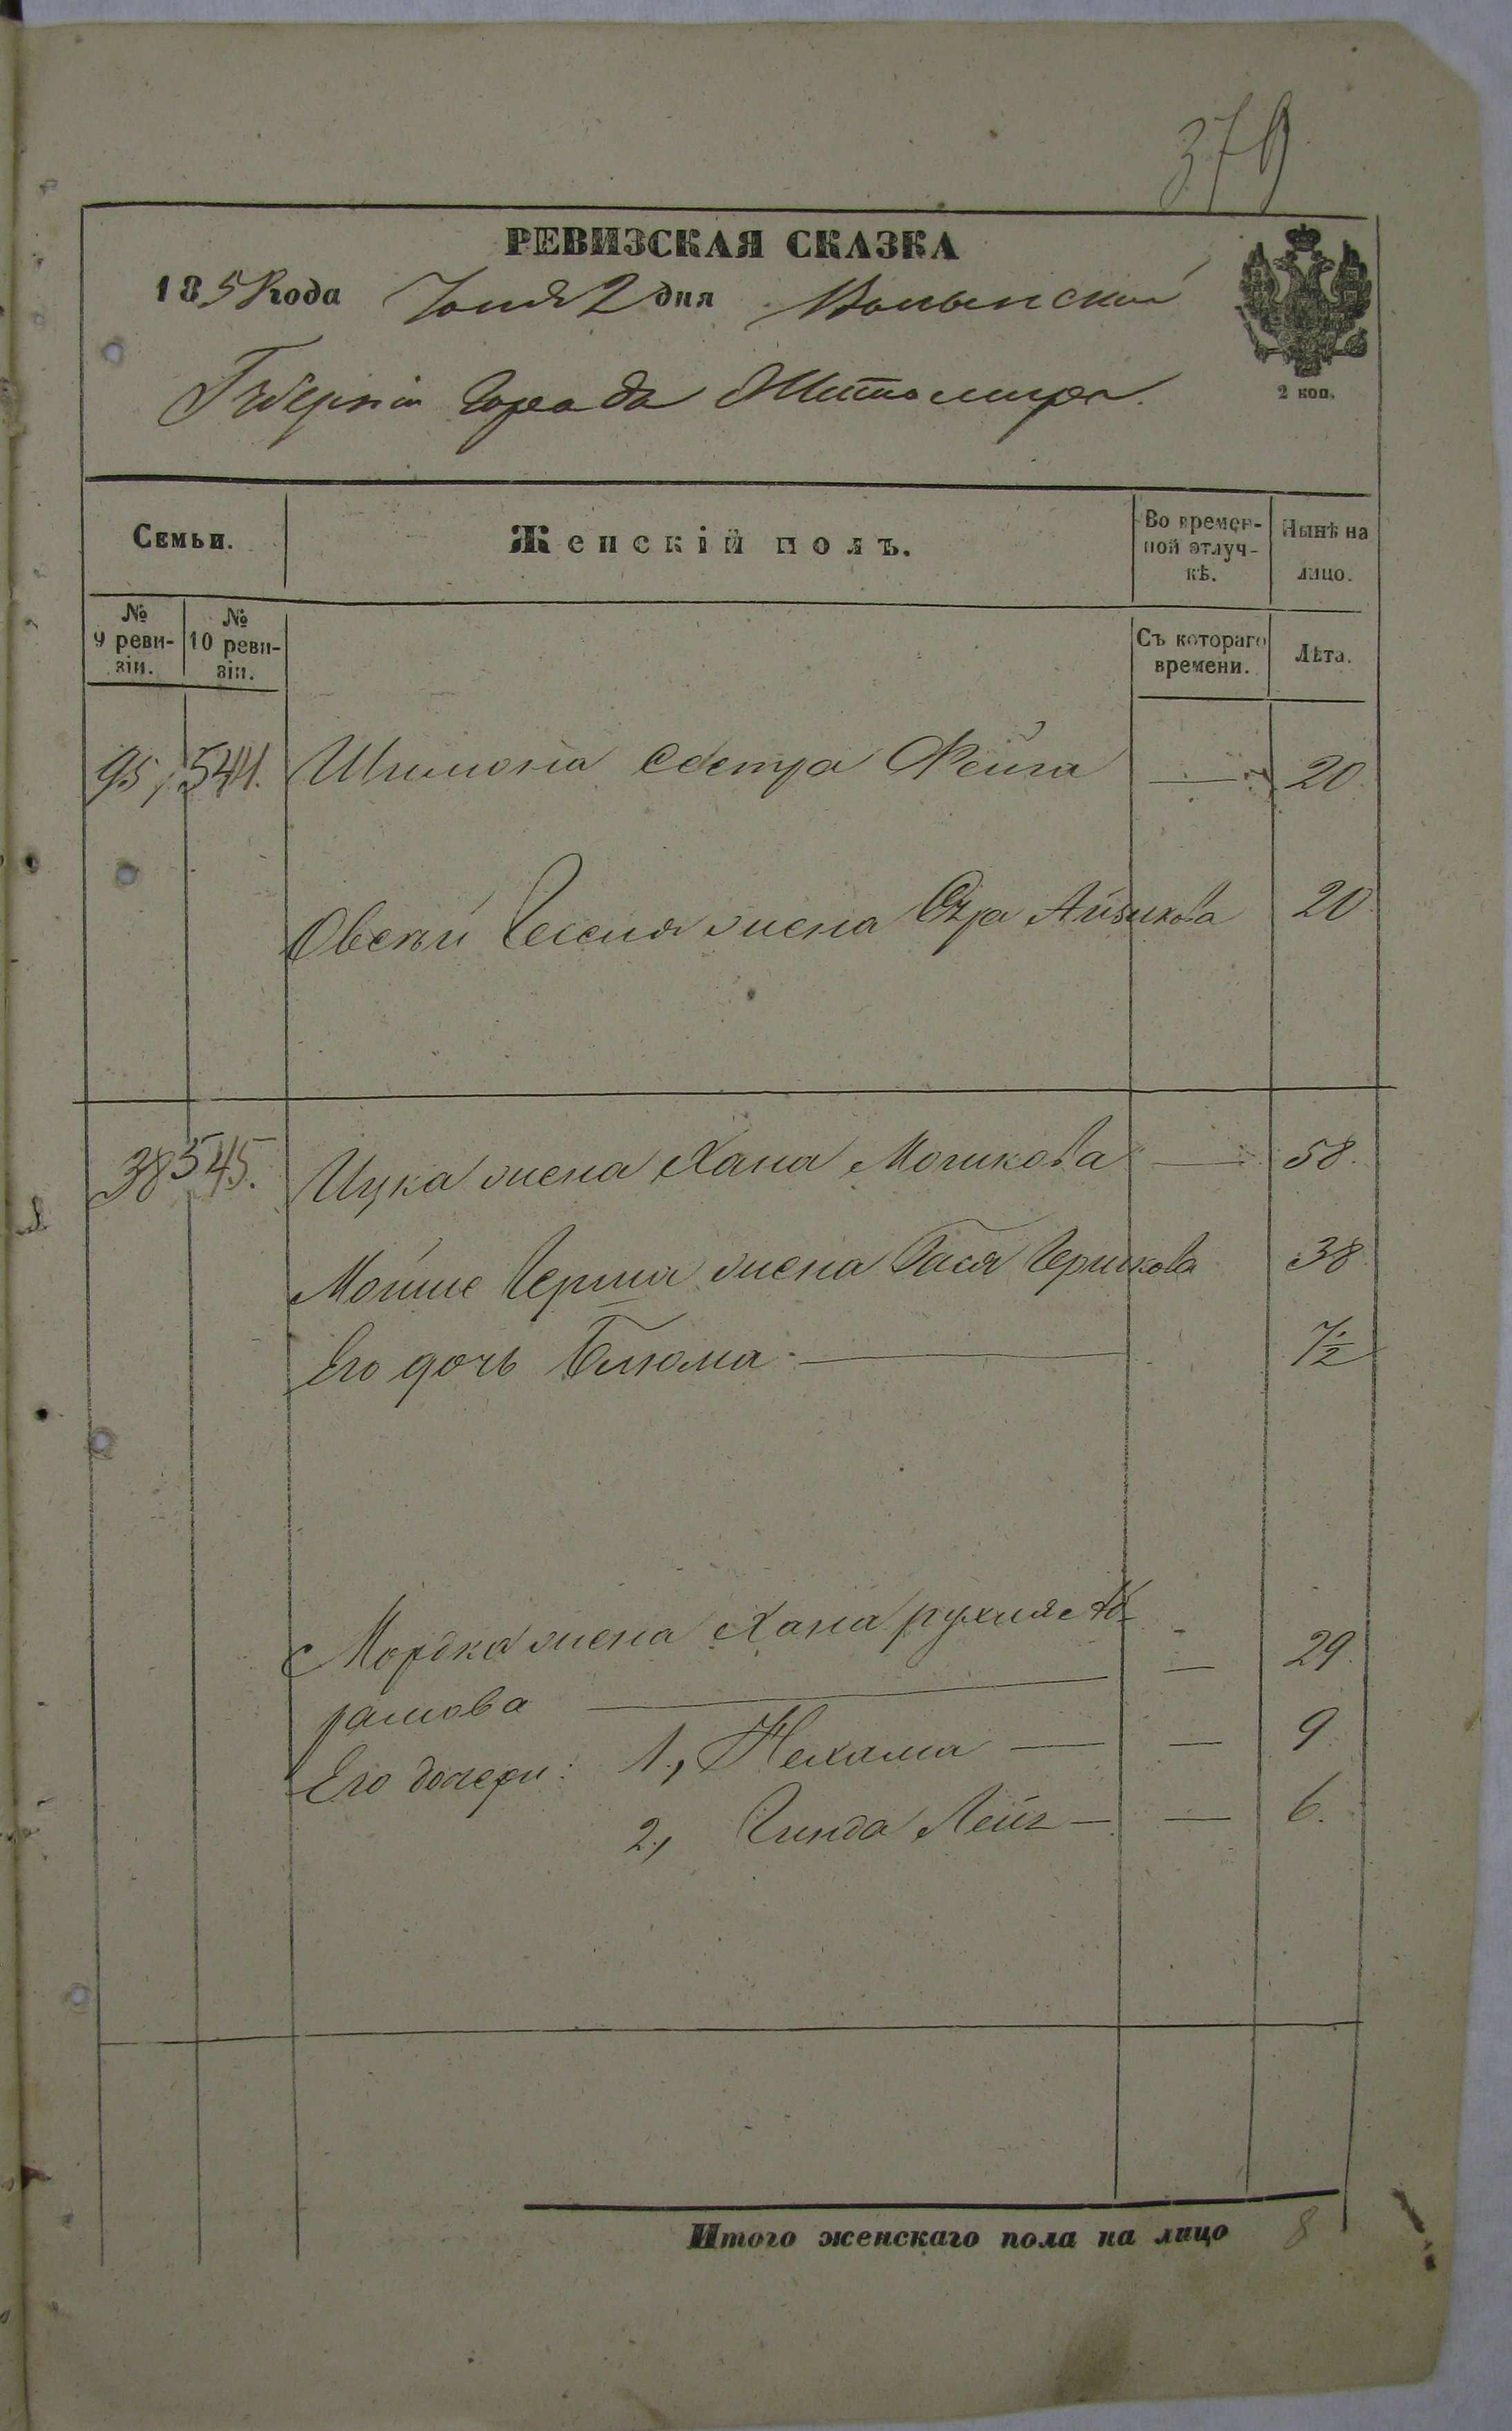 379
РЕВИЗСКАЯ СКАЗКА
1858 года Іюня 2 дня Волынской
Губерніи Города Житомира.
2 коп.
Семьи. Женскій полъ. Во времен-ной отлуч-кѣ. Нынѣ на лицо.
№ 9 реви-зіи. № 10 реви-зіи. Съ котораго времени. Лѣта.
95 544. Шлиома Сестра Фейга — 20.
Овсѣй жена Айзикова 20
38 545. Ицка жена Хана Мошкова — 58.
Мойше Герша жена Бася Гершкова 38
Его дочь Блюма — 1/2
Мордка жена Хана рухля Аб-
рамова — — 29.
Его дочери: 1., Нехама — — 9.
2., Гинда Лея — — 6.
Итого женскаго пола на лицо 8